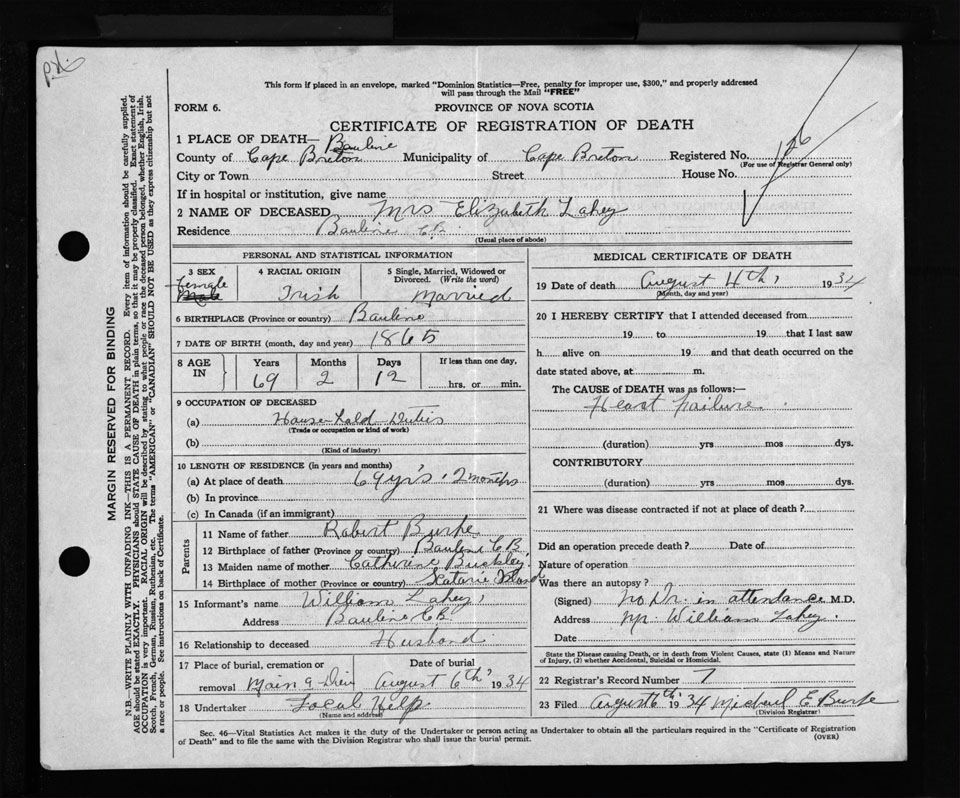 This form if placed in an envelope, marked "Dominion Statistics—Free, penalty for improper use, $300," and properly addressed
will pass through the Mail "FREE"
FORM 6.
PROVINCE OF NOVA SCOTIA
CERTIFICATE OF REGISTRATION OF DEATH
1 PLACE OF DEATH— Bauline
County of Cape Breton Municipality of Cape Breton Registered No. 126
(For use of Registrar General only)
City or Town Street House No.
If in hospital or institution, give name
2 NAME OF DECEASED Mrs Elizabeth Lahey
Residence Bauline C.B.
(Usual place of abode)
PERSONAL AND STATISTICAL INFORMATION
3 SEX Female Male
4 RACIAL ORIGIN Irish
5 Single, Married, Widowed or Divorced. (Write the word) Married
6 BIRTHPLACE (Province or country) Bauline
7 DATE OF BIRTH (month, day and year) 1865
8 AGE IN
Years Months Days If less than one day,
69 2 12 hrs. or min.
9 OCCUPATION OF DECEASED
(a) House-hold Duties
(Trade or occupation or kind of work)
(b)
(Kind of industry)
10 LENGTH OF RESIDENCE (in years and months)
(a) At place of death 69 yr's. 2 months
(b) In province
(c) In Canada (if an immigrant)
Parents
11 Name of father Robert Burke
12 Birthplace of father (Province or country) Bauline C.B.
13 Maiden name of mother Catherine Buckley
14 Birthplace of mother (Province or country) Scatarie Island
15 Informant's name William Lahey
Address Bauline C.B.
16 Relationship to deceased Husband
17 Place of burial, cremation or removal Main-a-Dieu
Date of burial August 6th, 1934
18 Undertaker Local Help
(Name and address)
MEDICAL CERTIFICATE OF DEATH
19 Date of death August 4th, 1934
(Month, day and year)
20 I HEREBY CERTIFY that I attended deceased from
19 to 19 that I last saw
h alive on 19 and that death occurred on the
date stated above, at m.
The CAUSE OF DEATH was as follows:—
Heart failure.
(duration) yrs mos dys.
CONTRIBUTORY
(duration) yrs mos dys.
21 Where was disease contracted if not at place of death?
Did an operation precede death? Date of
Nature of operation
Was there an autopsy?
(Signed) No Dr. in attendance M.D.
Address Mr. William Lahey.
Date
State the Disease causing Death, or in death from Violent Causes, state (1) Means and Nature
of Injury, (2) whether Accidental, Suicidal or Homicidal.
22 Registrar's Record Number 7
23 Filed August 6th, 1934 Michael E Burke
(Division Registrar)
Sec. 46—Vital Statistics Act makes it the duty of the Undertaker or person acting as Undertaker to obtain all the particulars required in the "Certificate of Registration
of Death" and to file the same with the Division Registrar who shall issue the burial permit.
(OVER)
MARGIN RESERVED FOR BINDING
N.B.—WRITE PLAINLY WITH UNFADING INK—THIS IS A PERMANENT RECORD. Every item of information should be carefully supplied.
AGE should be stated EXACTLY. PHYSICIANS should STATE CAUSE OF DEATH in plain terms, so that it may be properly classified. Exact statement of
OCCUPATION is very important. RACIAL ORIGIN will be described by stating to what people or race the deceased person belonged, whether English, Irish,
Scotch, French, German, Russian, Ruthenian, etc. The terms "AMERICAN" or "CANADIAN" SHOULD NOT BE USED as they express citizenship but not
a race or people. See instructions on back of Certificate.